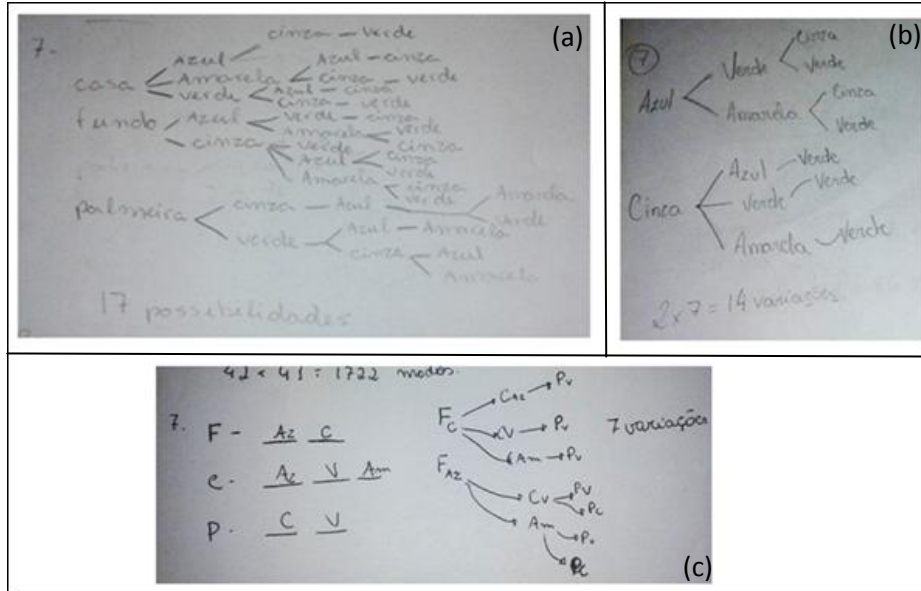 7.
(a)
cinza — verde
Azul
Azul — cinza
casa
Amarela
cinza — verde
verde
Azul — cinza
cinza — verde
fundo
Azul
verde — cinza
Amarela
verde
cinza
cinza
verde
Azul
cinza
verde
Amarela
cinza
verde
palmeira
cinza — Azul
Amarela
verde
verde
Azul — Amarela
cinza
Azul
Amarela
17 possibilidades
(b)
7
Azul
Verde
Cinza
Verde
Amarela
Cinza
Verde
Cinza
Azul
Verde
Verde
Verde
Amarela
Verde
2x7 = 14 variações
42 x 41 = 1722 modos.
7. F - Az C
C - Az V Am
P. C V
Fc
CAz
Pv
CV
Pv
Am
Pv
FAz
Cv
Pv
Pc
Am
Pv
Pc
7 variações
(c)